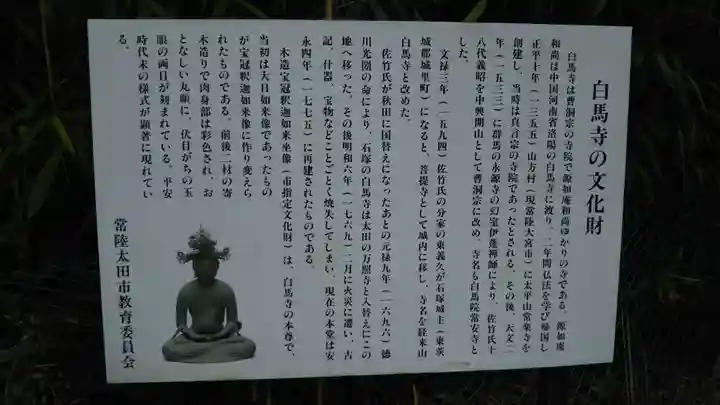 白馬寺の文化財
白馬寺は曹洞宗の寺院で源如庵和尚ゆかりの寺である。源如庵
和尚は中国河南省洛陽の白馬寺に渡り、二年間仏法を学び帰国し
正平十年(一三五五)山方村(現常陸大宮市)に太平山常楽寺を
創建し、当時は真言宗の寺院であったとされる。その後、天文二
年(一五三三)に群馬の永源寺の幻室伊蓬禅師により、佐竹氏十
八代義昭を中興開山として曹洞宗に改め、寺名も白馬院常安寺と
した。
文禄三年(一五九四)佐竹氏の分家の東義久が石塚城主(東茨
城郡城里町)になると、菩提寺として城内に移し、寺名を経来山
白馬寺と改めた。
佐竹氏が秋田に国替えになったあとの元禄九年(一六九六)徳
川光圀の命により、石塚の白馬寺は太田の万照寺と入替えにこの
地へ移った。その後明和六年(一七六九)二月に火災に遭い、古
記、什器、宝物などことごとく焼失してしまい、現在の本堂は安
永四年(一七七五)に再建されたものである。
木造宝冠釈迦如来坐像(市指定文化財)は、白馬寺の本尊で、
当初は大日如来像であったもの
が宝冠釈迦如来像に作り変えら
れたものである。前後二材の寄
木造りで肉身部は彩色され、お
となしい丸顔に、伏目がちの玉
眼の両目が刻まれている。平安
時代末の様式が顕著に現れてい
る。
常陸太田市教育委員会